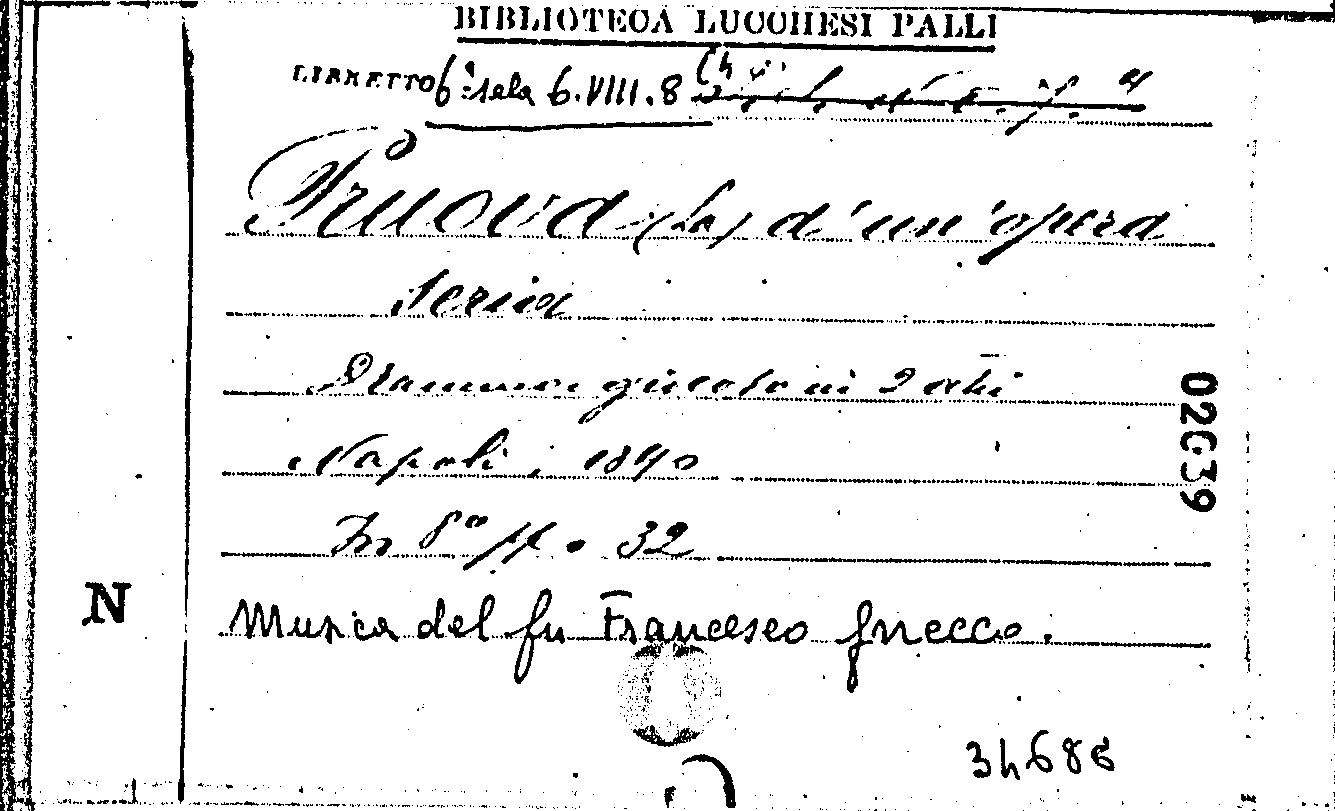 BIBLIOTECA LUCCHESI PALLI
LIBRETTO 6ª sala 6.VIII.8
Pruova (La) d'un'opera
seria
Dramma giocoso in 2 atti
Napoli, 1840
In 8º pp. 32
Musica del fu Francesco Gnecco.
N
02639
34686